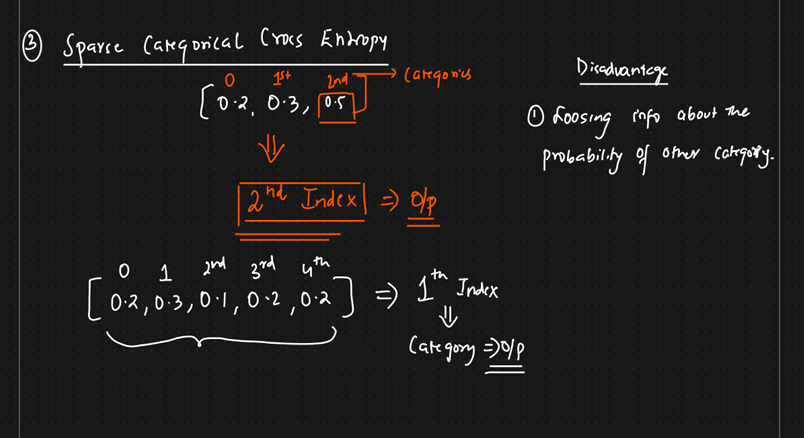 ③ Sparse Categorical Cross Entropy
0 1st 2nd → Categories
[0.2, 0.3, 0.5]
⇓
2nd Index ⇒ O/p
0 1 2nd 3rd 4th
[0.2, 0.3, 0.1, 0.2, 0.2] ⇒ 1th Index
⇓
Category ⇒ O/p
Disadvantage
① Loosing info about the
probability of other category.